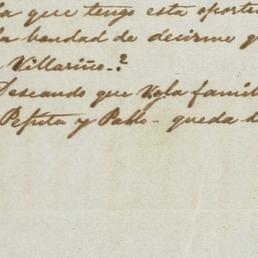 que tengo esta oportu
la bondad de decirme q
Villariño.?
Deseando que V. y la famil
Pepita y Pablo - queda d